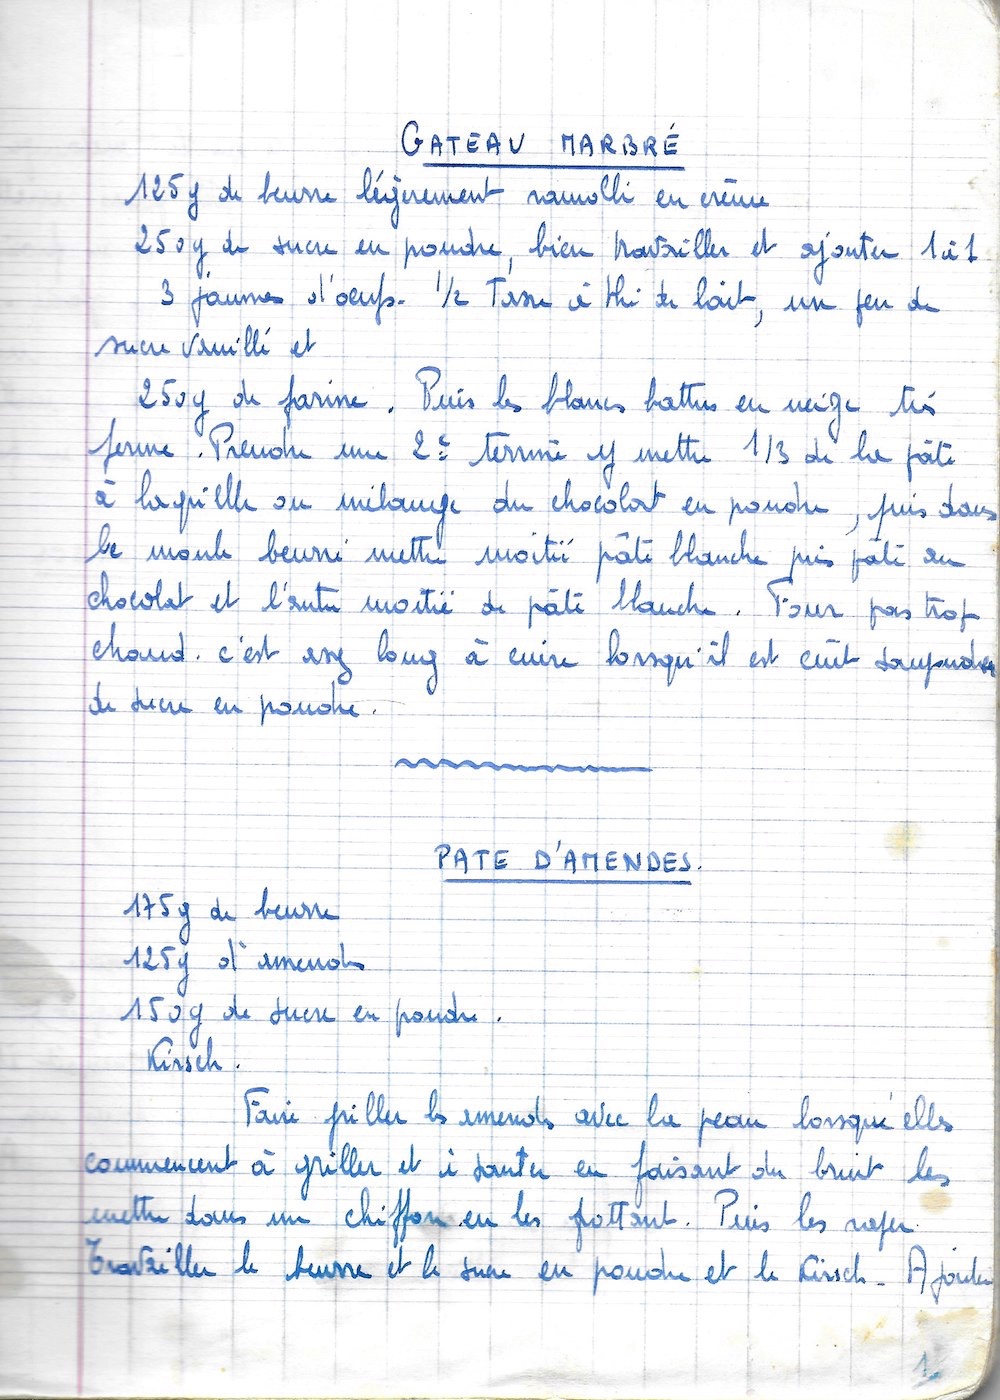 GATEAU MARBRÉ
125g de beurre légèrement ramolli en crème
250g de sucre en poudre, bien travailler et ajouter 1 à 1
3 jaunes d'oeufs. 1/2 Tasse à thé de lait, un peu de
sucre vanillé et
250g de farine. Puis les blancs battus en neige très
ferme. Prendre une 2e terrine y mettre 1/3 de la pâte
à laquelle on mélange du chocolat en poudre, puis dans
le moule beurré mettre moitié pâte blanche puis pâte au
chocolat et l'autre moitié de pâte blanche. Four pas trop
chaud. c'est assez long à cuire lorsqu'il est cuit saupoudrer
de sucre en poudre.
PATE D'AMENDES.
175g de beurre
125g d'amendes
150g de sucre en poudre.
Kirsch.
Faire griller les amendes avec la peau lorsqu'elles
commencent à griller et à sauter en faisant du bruit les
mettre dans un chiffon en les frottant. Puis les raper.
Travailler le beurre et le sucre en poudre et le Kirsch - Ajouter
1.